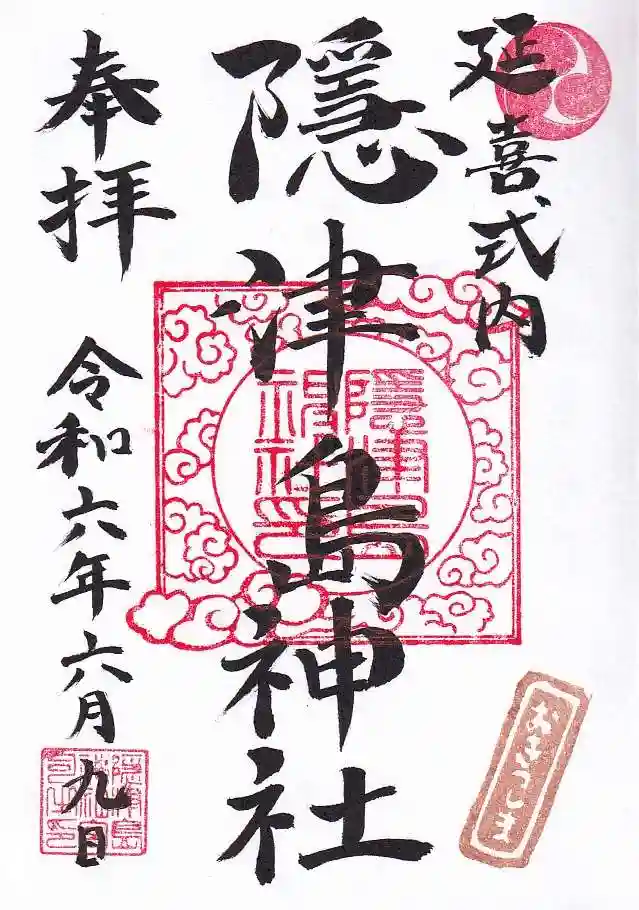 延喜式内
隱津島神社
奉拝
令和六年六月九日
おきつしま